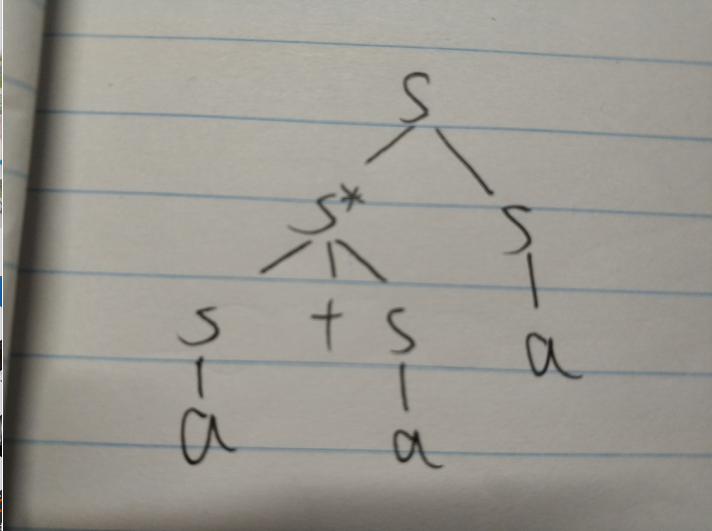 S
S* S
S + S a
a a